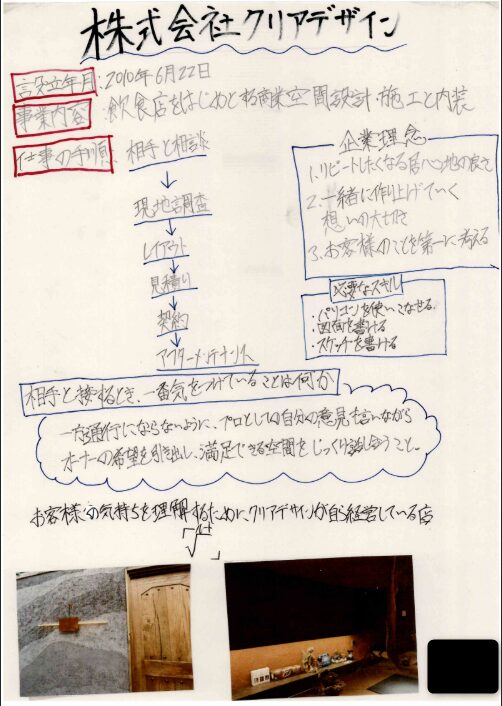 株式会社クリアデザイン
設立年月:2010年6月22日
事業内容:飲食店をはじめとする商業空間設計・施工と内装
仕事の手順:相手と相談
↓
現地調査
↓
レイアウト
↓
見積り
↓
契約
↓
アフターメンテナンス
企業理念
1.リピートしたくなる居心地の良さ
2.一緒に作り上げていく
想いの大切さ
3.お客様のことを第一に考える
必要なスキル
・パソコンを使いこなせる
・図面を書ける
・スケッチを書ける
相手と接するとき、一番気をつけていることは何か
一方通行にならないように、プロとしての自分の意見を言いながら
オーナーの希望を引き出し、満足できる空間をじっくり話し合うこと。
お客様の気持ちを理解するために、クリアデザインが自ら経営している店